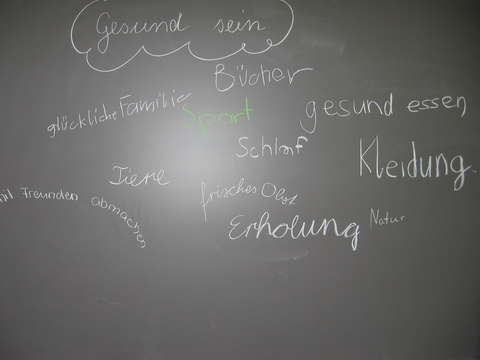 Gesund sein
Bücher
glückliche Familie
Sport
gesund essen
Schlaf
Kleidung
Tiere
mit Freunden abmachen
frisches Obst
Erholung
Natur